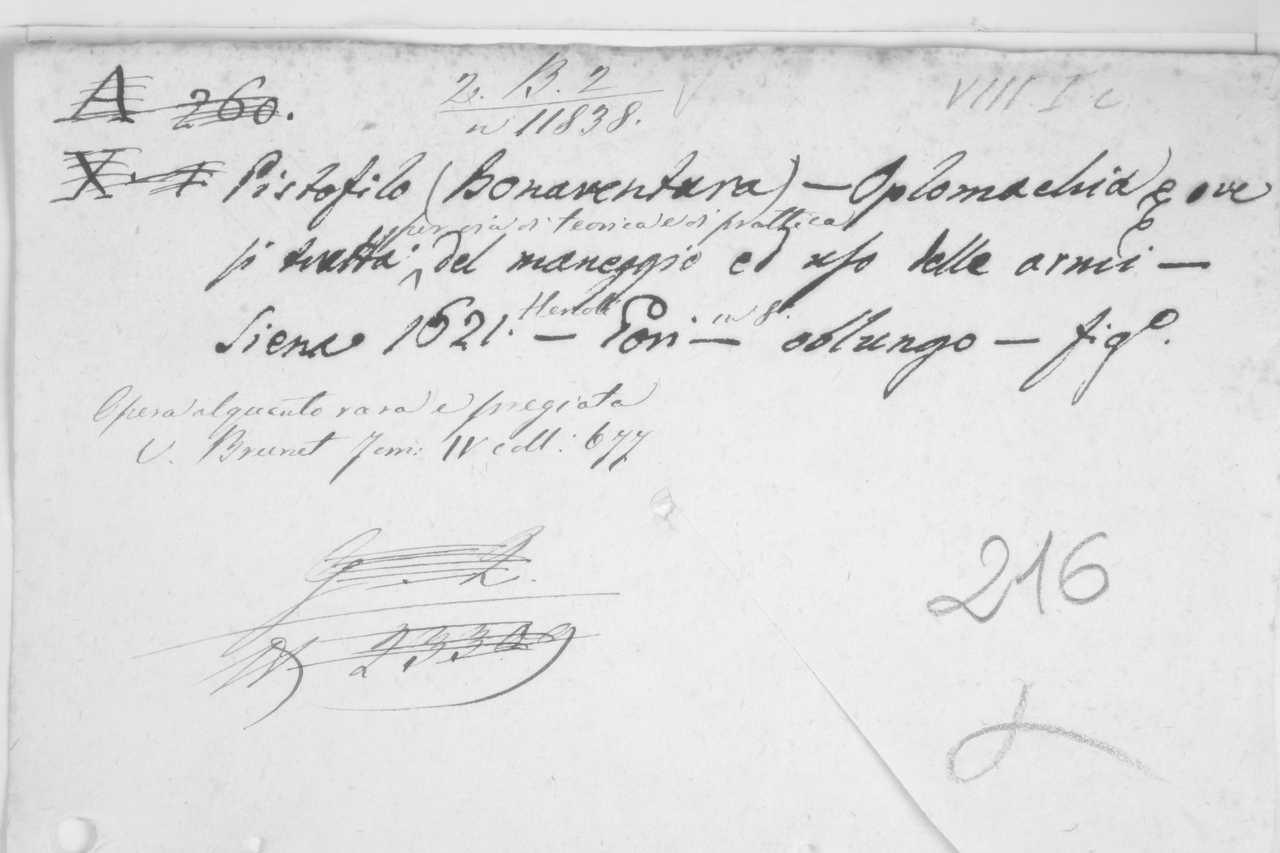 A 260.
2. B. 2
n 11838.
VIII I c
X. 7. Pistofilo (Bonaventura) — Oplomachia ove
per via di teorica e di prattica
si tratta del maneggio ed uso delle armi —
Hercole in 8.
Siena 1621. — Gori — oblungo — figº.
Opera alquanto rara e pregiata
V. Brunet Tom: IV coll: 677
G. 2.
N 2330
216